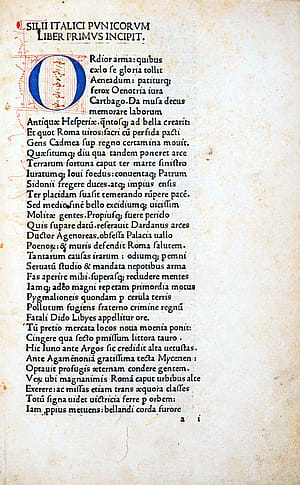 SILII ITALICI PVNICORVM
LIBER PRIMVS INCIPIT.
ORdior arma: quibus
cælo se gloria tollit
Aeneadum: patiturq;
ferox Oenotria iura
Carthago. Da musa decus
memorare laborum
Antiquæ Hesperiæ. q̃ntosq; ad bella crearit:
Et quot Roma uiros: sacri cũ perfida pacti
Gens Cadmea sup regno certamina mouit.
Quæsitumq; diu qua tandem poneret arce
Terrarum fortuna caput ter marte sinistro
Iuratumq; Ioui foedus: conuentaq; Patrum
Sidonii fregere duces. atq; impius ensis
Ter placidam suasit temerando rũpere pacẽ.
Sed medio finẽ bello excidiumq; uicissim
Molitæ gentes. Propiusq; fuere periclo
Quis supare datũ. reserauit Dardanus arces
Ductor Agenoreas, obsessa Palacia uallo
Poenor; & muris defendit Roma salutem.
Tantarum causas irarum: odiumq; pemni
Seruatũ studio & mandata nepotibus arma
Fas aperire mihi. superasq; recludere mentes
Iamq; adeo magni repetam primordia motus
Pygmalioneis quondam p cerula terris
Pollutum fugiens fraterno crimine regnũ
Fatali Dido Libyes appellitur oræ.
Tũ pretio mercata locos noua moenia ponit:
Cingere qua secto pmissum littora tauro.
Hic Iuno ante Argos sic credidit alta uetustas.
Ante Agamẽnoniã gratissima tecta Mycenen:
Optauit profugis æternam condere gentem.
Veȝ ubi magnanimis Romã caput urbibus alte
Exerere: ac missas etiam trans æquora classes
Totũ signa uidet uictricia ferre p orbem:
Iam ppius metuens: bellandi corda furore
a i